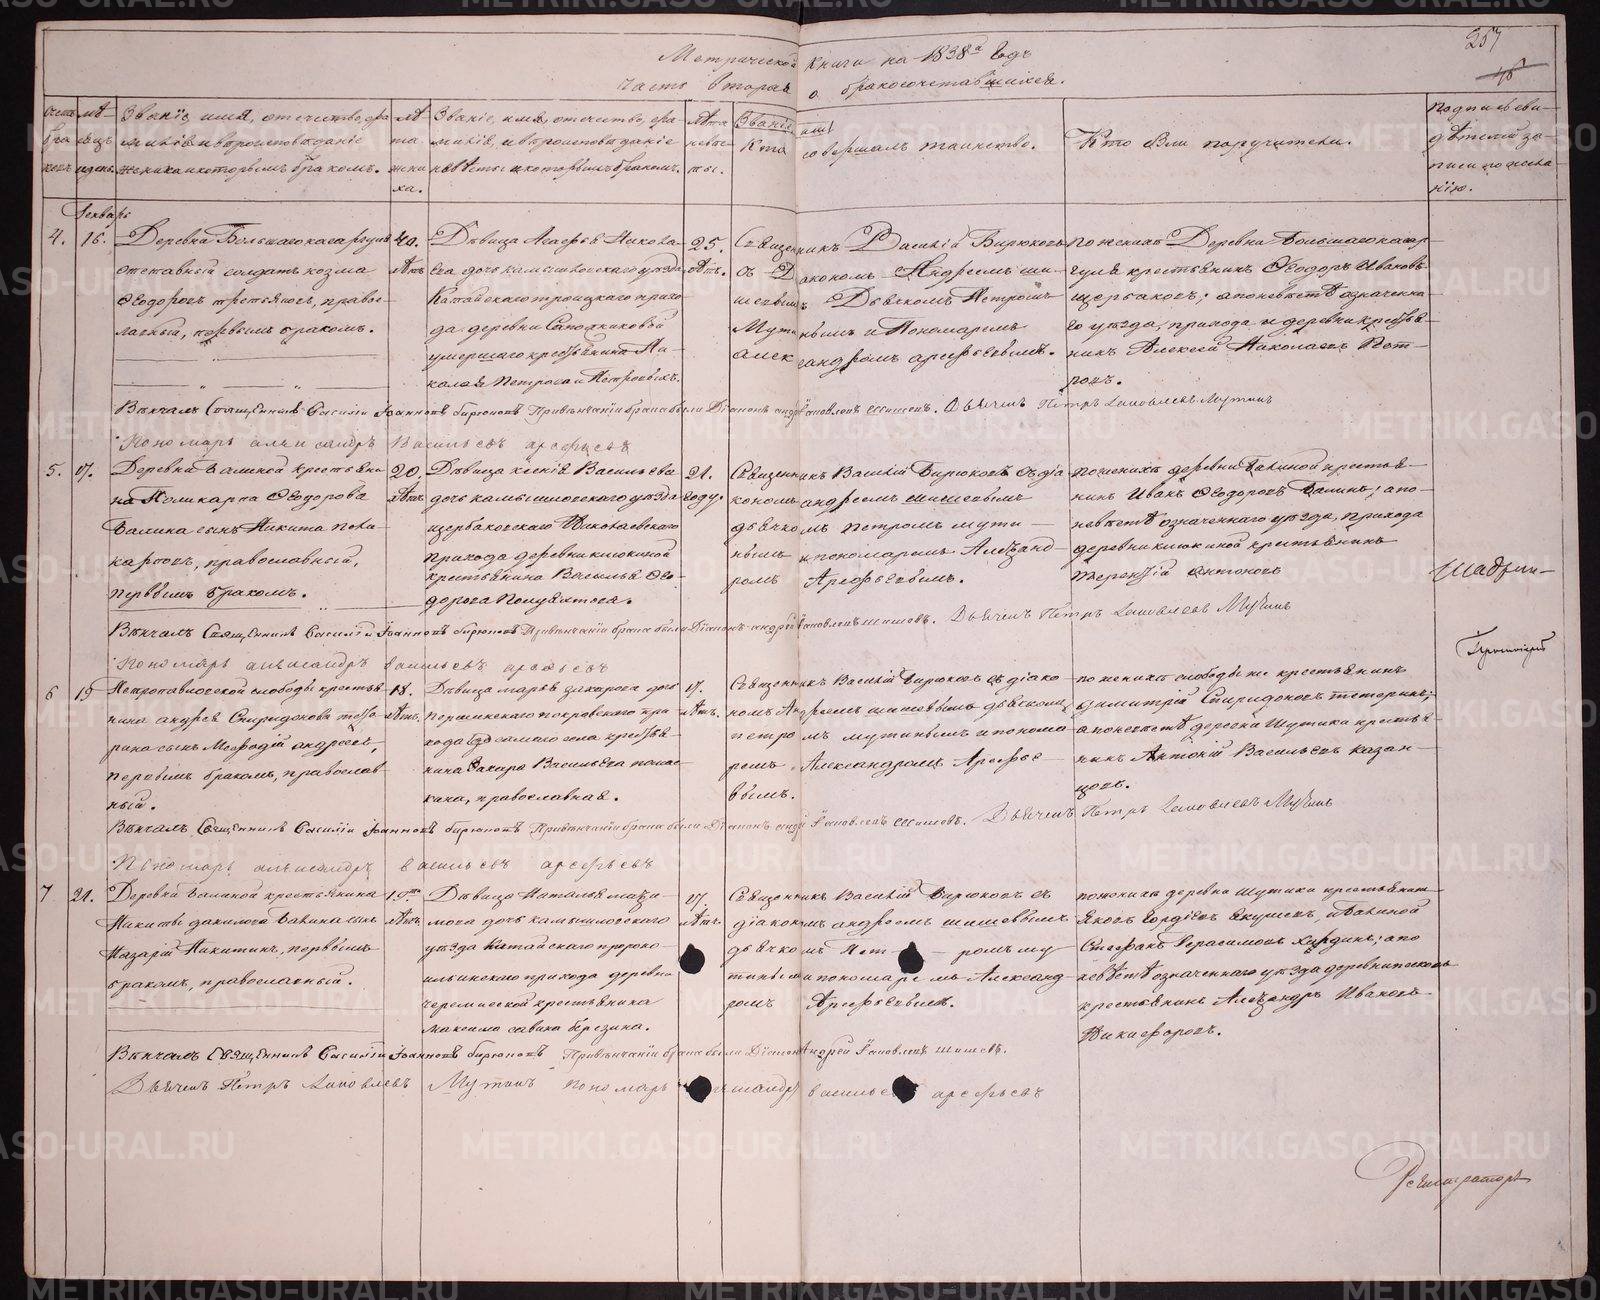 257
Метрической книги на 1838й Годъ
часть вторая о бракосочетавшихся.
Званіе, имя, отечество, фа-
миліе и вѣроисповѣданіе
жениха и которымъ бракомъ.
лѣ-
та
жени
ха.
Званіе, имя, отечество, фа-
миліе, и вѣроисповѣданіе
невѣсты и которымъ бракомъ.
лѣта
невѣс-
ты.
Кто
совершалъ таинство.
Кто были поручители.
Генварь
4.
16.
Деревни Большаго касаргуля
отставный солдатъ козма
Ѳеодоровъ третьяковъ, право-
славный, первымъ бракомъ.
40.
лѣтъ
Дѣвица Агафья Никола-
ева дочь камышловскаго уѣзда
Катайскаго троицкаго прихо-
да деревни
умершаго крестьянина Ни-
колая Петрова и Петровыхъ.
25.
лѣтъ.
Священникъ Василій Бирюковъ
съ Діакономъ Андреемъ ши-
шевымъ Дьячкомъ Петромъ
Мутинымъ и Пономаремъ
александромъ арефьевымъ.
по женихѣ Деревни Большаго касар-
гуля крестьянинъ Ѳеодоръ Ивановъ
щербаковъ; а по невѣстѣ означенна-
го уѣзда, прихода и деревни крестья-
нинъ Алексей Николаевъ Пет-
ровъ.
Вѣнчалъ Священникъ Василій Іоанновъ бирюковъ При вѣнчаніи брака были Діаконъ андрей Яковлевъ шишевъ. Дьячекъ Петръ Яковлевъ Мутинъ
Пономарь александръ Васильевъ арефьевъ
5.
17.
Деревни Балиной крестьяни-
на Поликарпа Ѳеодорова
Балина сынъ Никита поли-
карповъ, православный,
первымъ бракомъ.
20.
лѣтъ
Дѣвица ксенія Васильева
дочь камышловскаго уѣзда
щербаковскаго Николаевскаго
прихода деревни клюкиной
крестьянина Василья Ѳео-
дорова Полуяктова.
21.
году.
Священникъ Василій Бирюковъ съ діа-
кономъ андреемъ шишевымъ
дьячкомъ петромъ мути-
нымъ и пономаремъ Александ-
ромъ Арефьевымъ.
по женихѣ деревни Балиной крестья-
нинъ Иванъ Ѳеодоровъ Балинъ; а по
невѣстѣ означеннаго уѣзда, прихода
деревни клюкиной крестьянинъ
Терентій Антоновъ
Шадрин-
Вѣнчалъ Священникъ Василій Іоанновъ бирюковъ При вѣнчаніи брака были Діаконъ андрей Яковлевъ шишевъ. Дьячекъ Петръ Яковлевъ Мутинъ
Пономарь александръ Васильевъ арефьевъ
Протоіерей
6
19
Петропавловской слободы крестья-
нина андрея Спиридонова тете-
рина сынъ Меѳодій андреевъ,
первымъ бракомъ, православ-
ный.
18.
лѣтъ.
Дѣвица марья захарова дочь
першинскаго покровскаго при-
хода самаго села крестья-
нина Захара Васильева
православная.
17.
лѣтъ.
Священникъ Василій Бирюковъ съ діако-
номъ Андреемъ шишевымъ дьячкомъ
петромъ мутинымъ и понома-
ремъ Александромъ Арефье-
вымъ.
по женихѣ слободы же крестьянинъ
димитрій Спиридоновъ тетеринъ;
а по невѣстѣ деревни Шутина крестья-
нинъ Антоній Васильевъ казан-
цовъ.
Вѣнчалъ Священникъ Василій Іоанновъ бирюковъ При вѣнчаніи брака были Діаконъ андрей Яковлевъ шишевъ. Дьячекъ Петръ Яковлевъ Мутинъ
Пономарь александръ васильевъ арефьевъ
7
21.
Деревни Балиной крестьянина
Никиты данилова Балина сынъ
Назарій Никитинъ, первымъ
бракомъ, православный.
19ти
лѣтъ
Дѣвица Наталья макси-
мова дочь камышловскаго
уѣзда катайскаго пророко-
ильинскаго прихода деревни
черемисской крестьянина
максима савина березина.
17.
лѣтъ.
Священникъ Василій Бирюковъ съ
діакономъ андреемъ шишевымъ
дьячкомъ Пет-ромъ му-
тинымъ и пономаремъ Александ-
ромъ Арефьевымъ.
по женихѣ деревни шутина крестьянинъ
Яковъ Гордіевъ Якушевъ, и Балиной
Стефанъ Герасимовъ а по
невѣстѣ означеннаго уѣзда деревни
крестьянинъ Александръ Ивановъ
Никифоровъ.
Вѣнчалъ Священникъ Василій Іоанновъ бирюковъ При вѣнчаніи брака были Діаконъ Андрей Яковлевъ шишевъ.
Дьячекъ Петръ Яковлевъ Мутинъ пономарь александръ васильевъ арефьевъ
Регистраторъ
METRIKI.GASO-URAL.RU